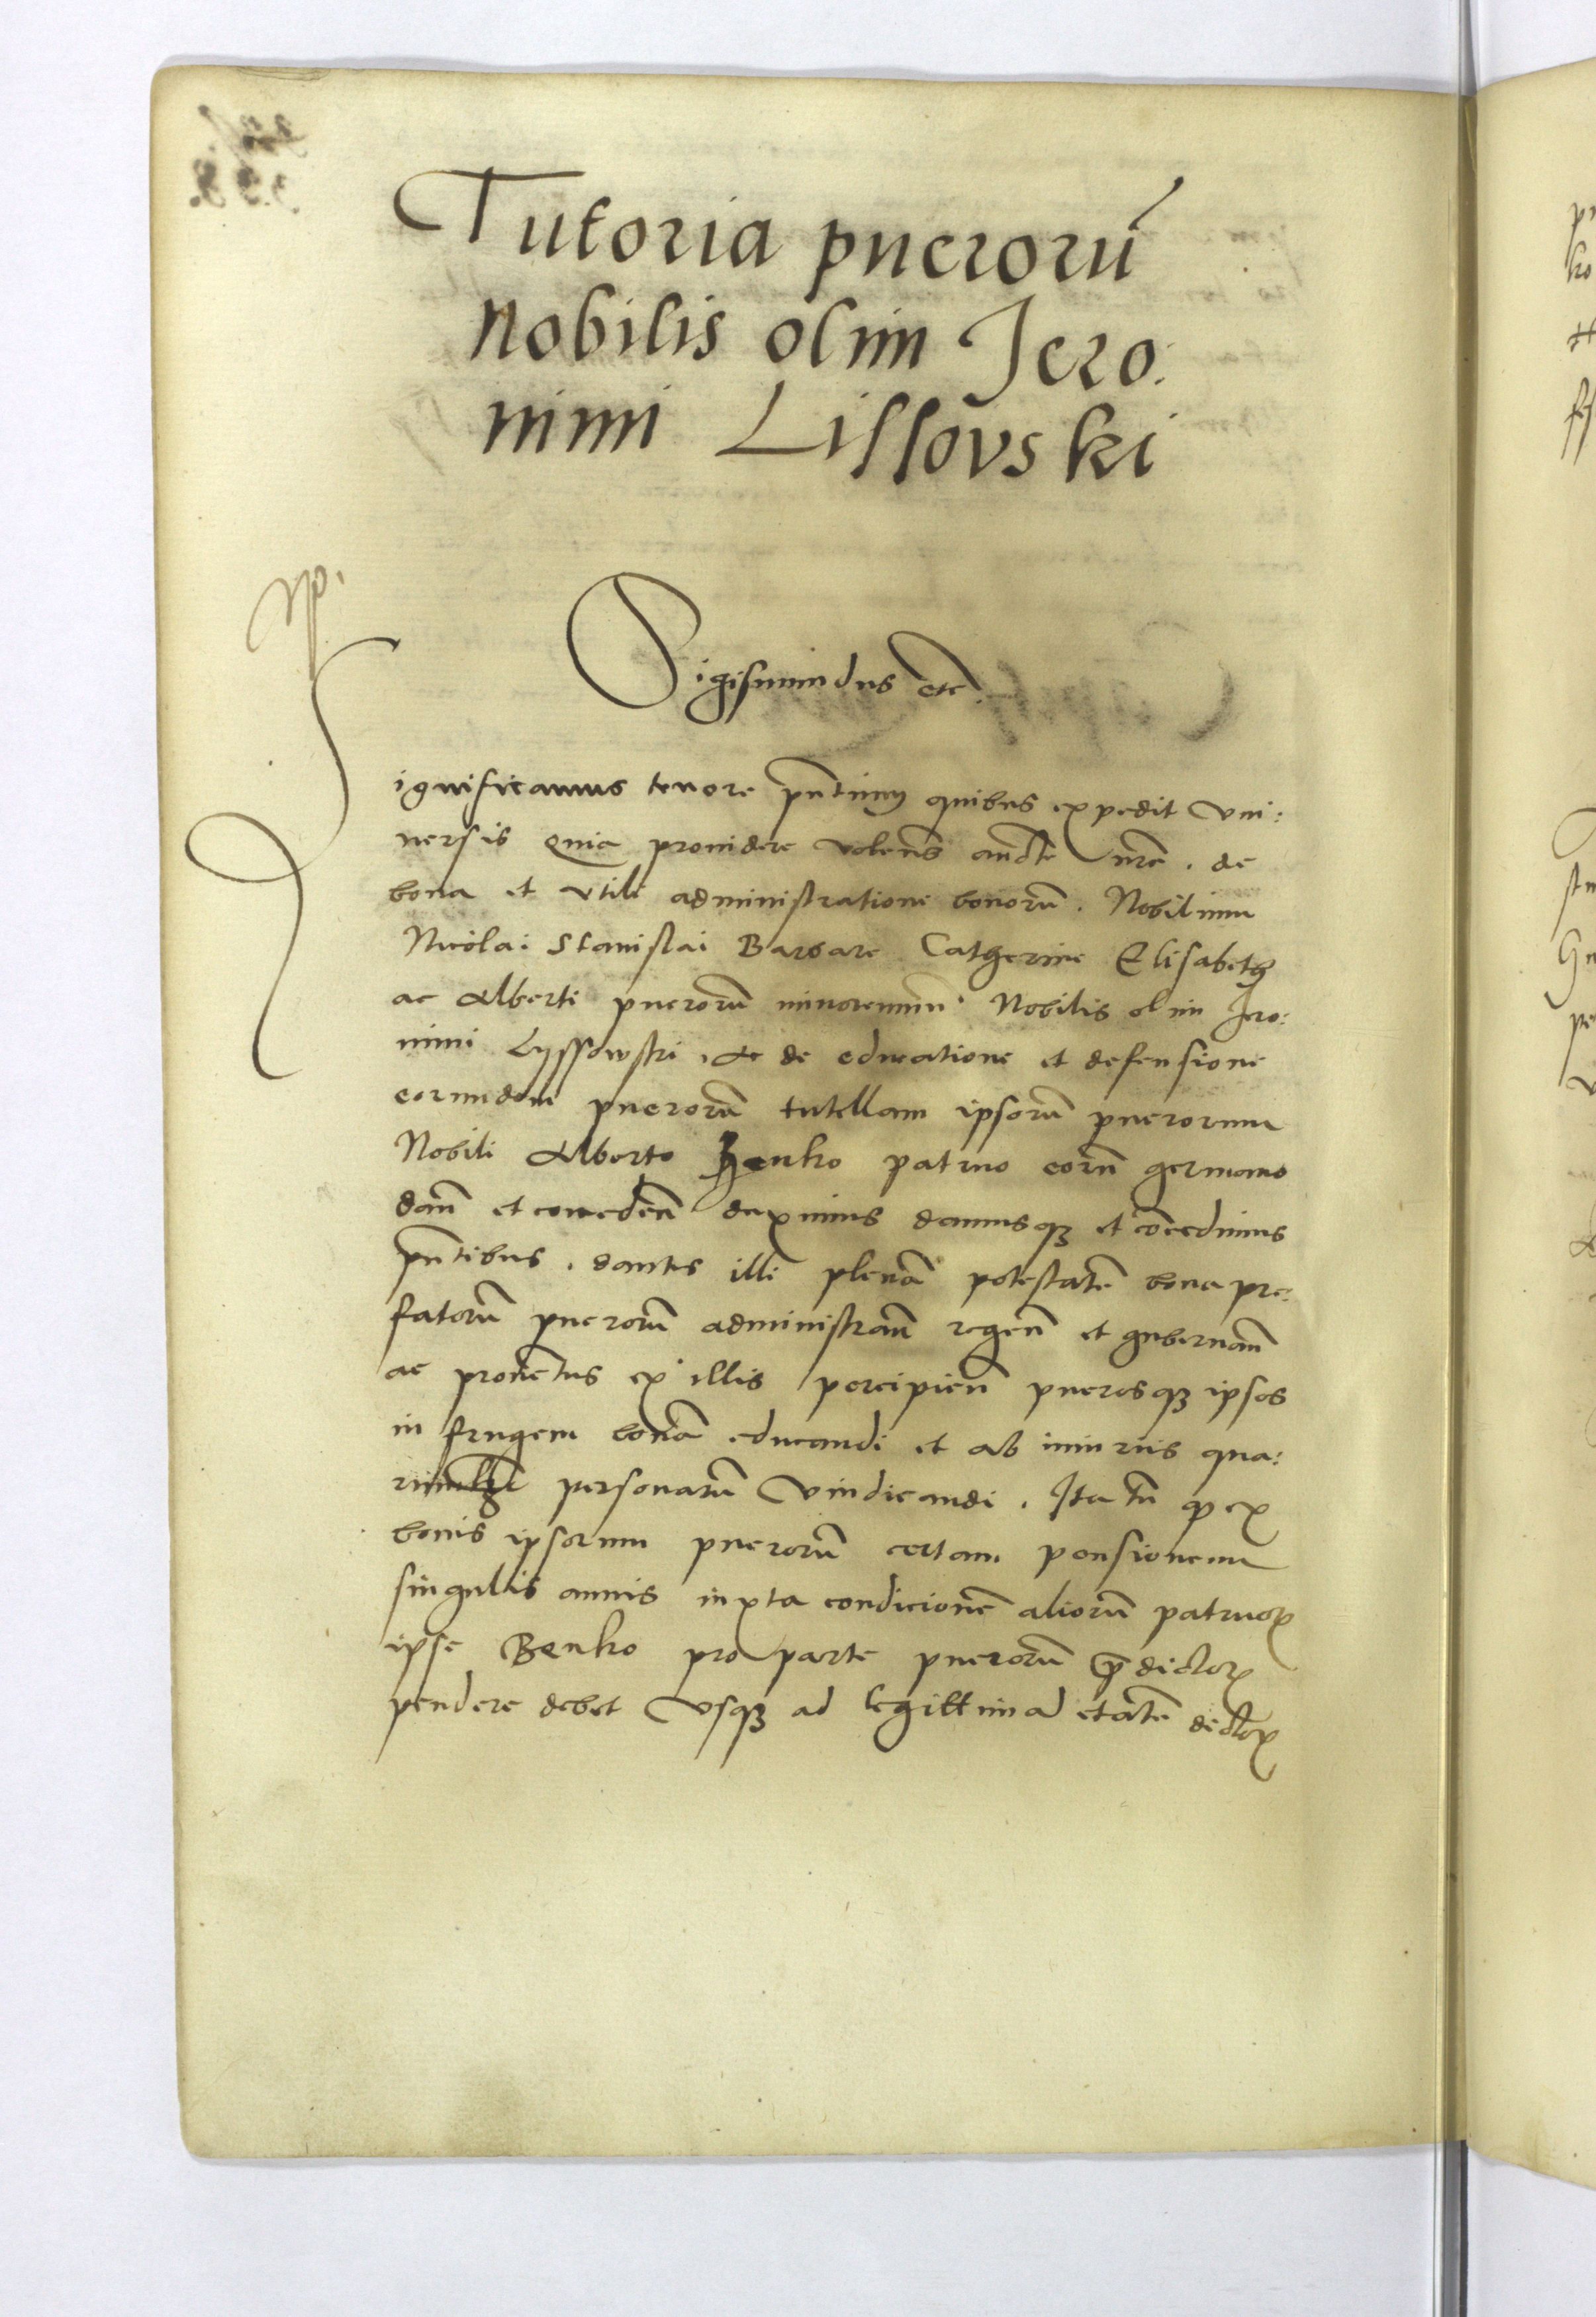 Tutoria puerorū
nobilis olim Jero:
nimi Lissovski
Sigismundus etc.
Significamus tenore pn̄tium quibus expedit Uni:
uersis Quia prouidere volen̄s auct̄e nrā. de
bona et vtili administratione bonorū. Nobilium
Nicolai Stanislai Barbare Catherine Elisabeth
ac Alberti puerorū minorennium Nobilis olim Jero:
nimi Lyssowski, Ac de educatione et defensione
eorundem puerorū tutellam ipsorū puerorum
Nobili Alberto Benko patruo eorū germano
dan̄ et conceden̄ duximus damusq3 et cōcedimus
pn̄tibus. dantes illi plenā potestatē bona pre:
fatorū puerorū administran̄ regen̄ et gubernan̄
ac prouentus ex illis percipien̄ puerosq3 ipsos
in frugem bonā educandi et ab iniuriis qua:
personarū Vindicandi. Ita tn̄ q ex
bonis ipsorum puerorū certam pensionem
singulis annis iuxta condicionē aliorū patruoꝝ
ipse Benko pro parte puerorū p̄dictoꝝ
pendere debet Usq3 ad legittimā etatē dictoꝝ